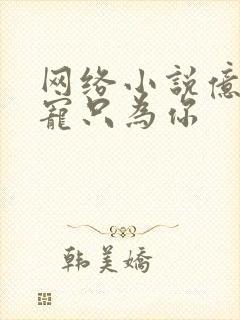 网络小说億
寵只為你
韩美嬌